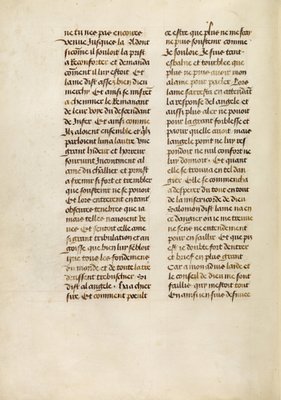 ne tu nes pas encores
venue Jusques la A dont
sicome il souloit la prist
a Reconforter et demanda
coment Il luy estoit Et
lame dist assez bien dieu
mercy Et ainsi se misrent
a cheminer le Remanant
de leur voye du descendant
de Infer Et ainsi comme
Ilz aloient ensemble et qilz
parloient lun a lautre Une
grant hideur et horreur
seurvint Incontinent al
ame du chlr et print
a fremir si fort et trembler
que soustenir ne se pouoit
Et lors entrerent en tant
obscures tenebres que ia
mais telles nauoient ve
ues Et sentoit celle ame
si grant tribulacion et an
goisse que bien lui sembloit
que tous les fondemens
du monde et de toute la tre
deussent tresbuchier Si
dist al angele ha a chier
sire Et comment poeult
ce estre que plus ne me scay
ne puis soustenir comme
Je souloie Je suis toute
esbahie et tourblee que
plus ne puis auoir mon
alaine pour parler Lors
lame sarresta en attendant
la response del angele et
aussi plus aler ne pouoit
pour la grant foiblesse et
paour quelle auoit mais
langele point ne luy res
pondoit ne nul confort ne
luy donnoit Et quant
elle se trouua en tel dan
gier Elle se commenca
a desperer du tout en tout
de la misericorde de dieu
Hallas mon dist lame na en
ce dangier ou ie me treuue
ne sens ne entendement
pour en saillir Et que pis
est ie doubte fort dentrer
et brief en plus grant
Car a mon aduis larde et
le conseil de dieu me sont
faillis que mestoit tout
En ainsi en suis desnuee